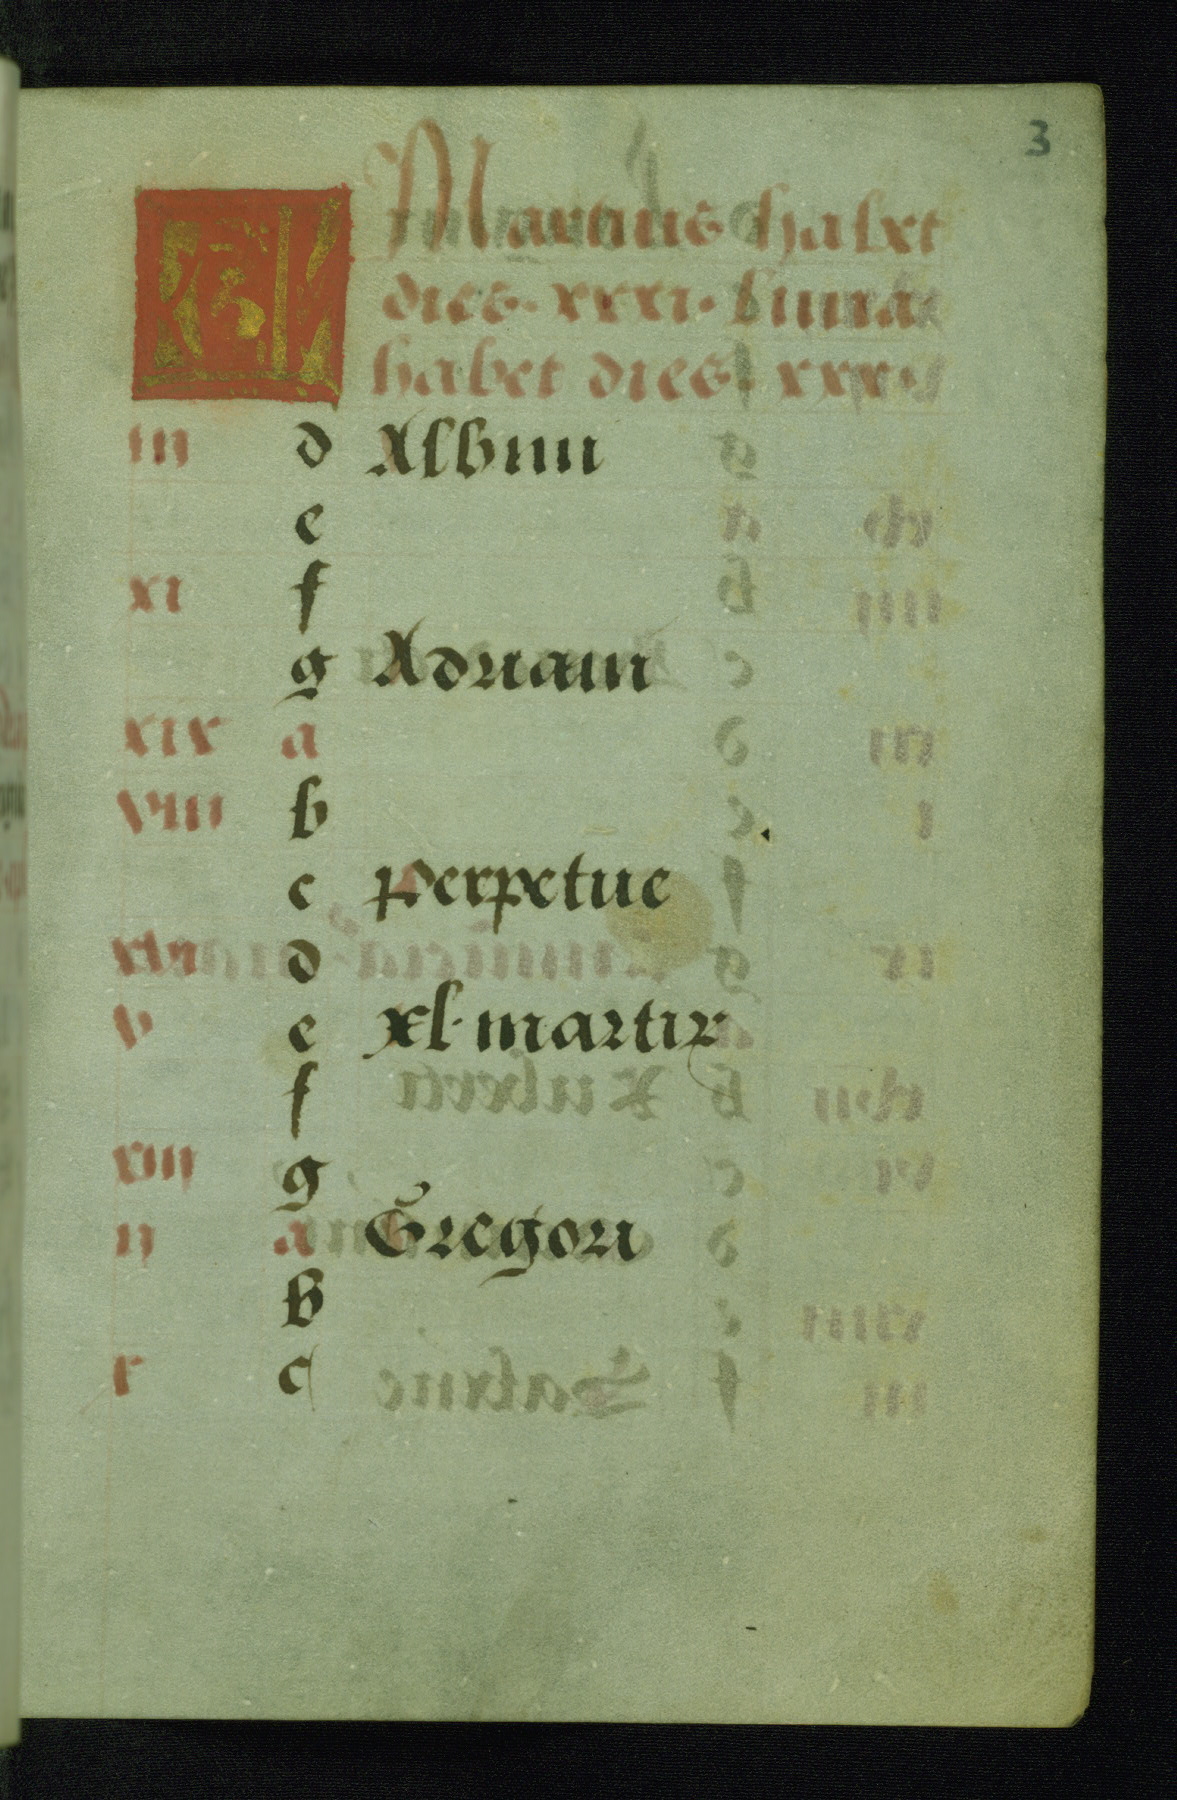 3
KL Marcius habet
dies. xxxi. luna
habet dies. xxx.
iii d Albini
e
xi f
g Adriani
xix a
viii b
c perpetue
xvi d
v e xl. martir
f
xiii g
ii a Gregorii
b
x c